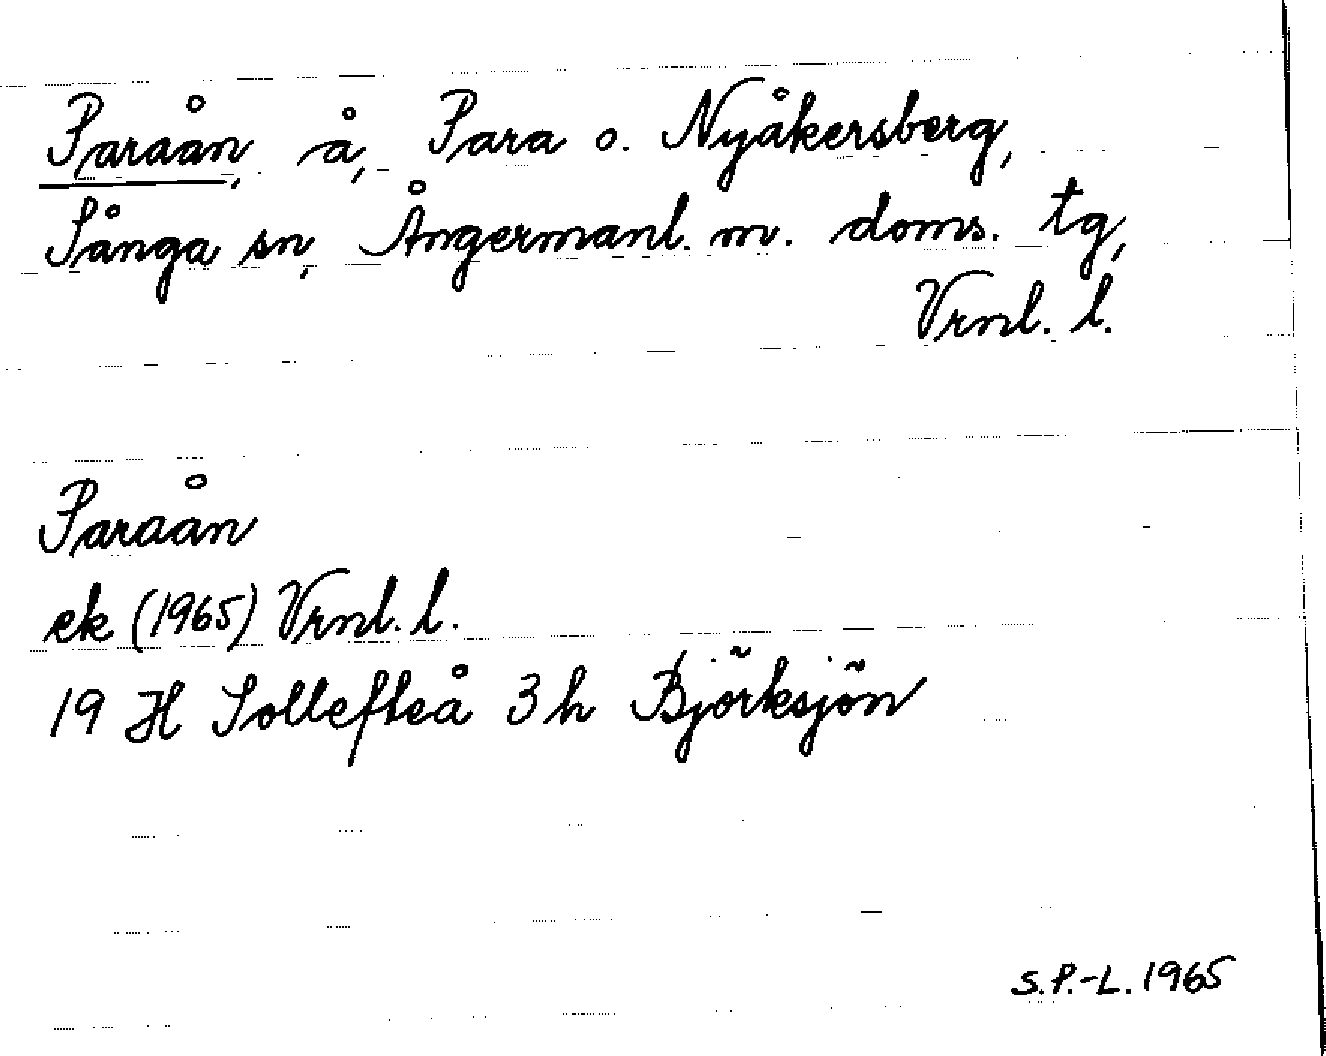 Paraån, å, Para o. Nyåkersberg,
Sånga sn, Ångermanl. m. doms. tg,
Vrnl. l.
Paraån
ek (1965) Vrnl. l.
19 H Sollefteå 3h Björksjön
S.P.-L. 1965